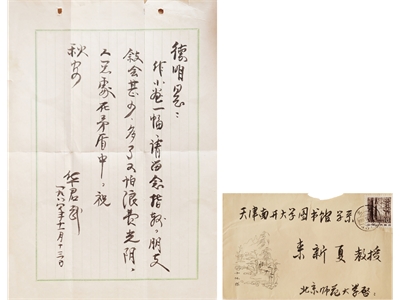 德明同志：
作小画一幅，请留念指教。朋友
叙会甚少，多了又怕浪费光阴。
人总处在矛盾中。祝
秋安
华君武
一九八六年十一月十三日
天津南开大学图书馆学系
来新夏教授
北京师范大学